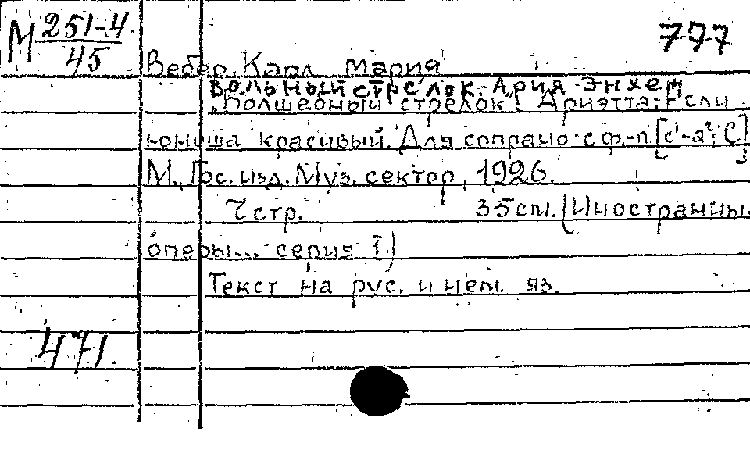 М 251-4/45
777
Вебер, Карл Мария
Вольный стрелок. Ария Энхен
"Волшебный стрелок". Ариэтта: Если
юноша красивый. Для сопрано с ф.-п. [c¹-a²; C]
М., Гос. изд. Муз. сектор, 1926.
7 стр. 35 см. (Иностранны
оперы... серия I)
Текст на рус. и нем яз.
471.